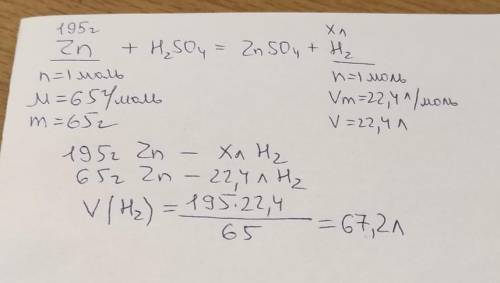 195г                                   Xл
Zn + H₂SO₄ = ZnSO₄ + H₂
n=1моль                         n=1моль
M=65г/моль                   Vm=22,4л/моль
m=65г                             V=22,4л
195г Zn – Xл H₂
65г Zn – 22,4л H₂
V(H₂) = 195·22,4 / 65 = 67,2л